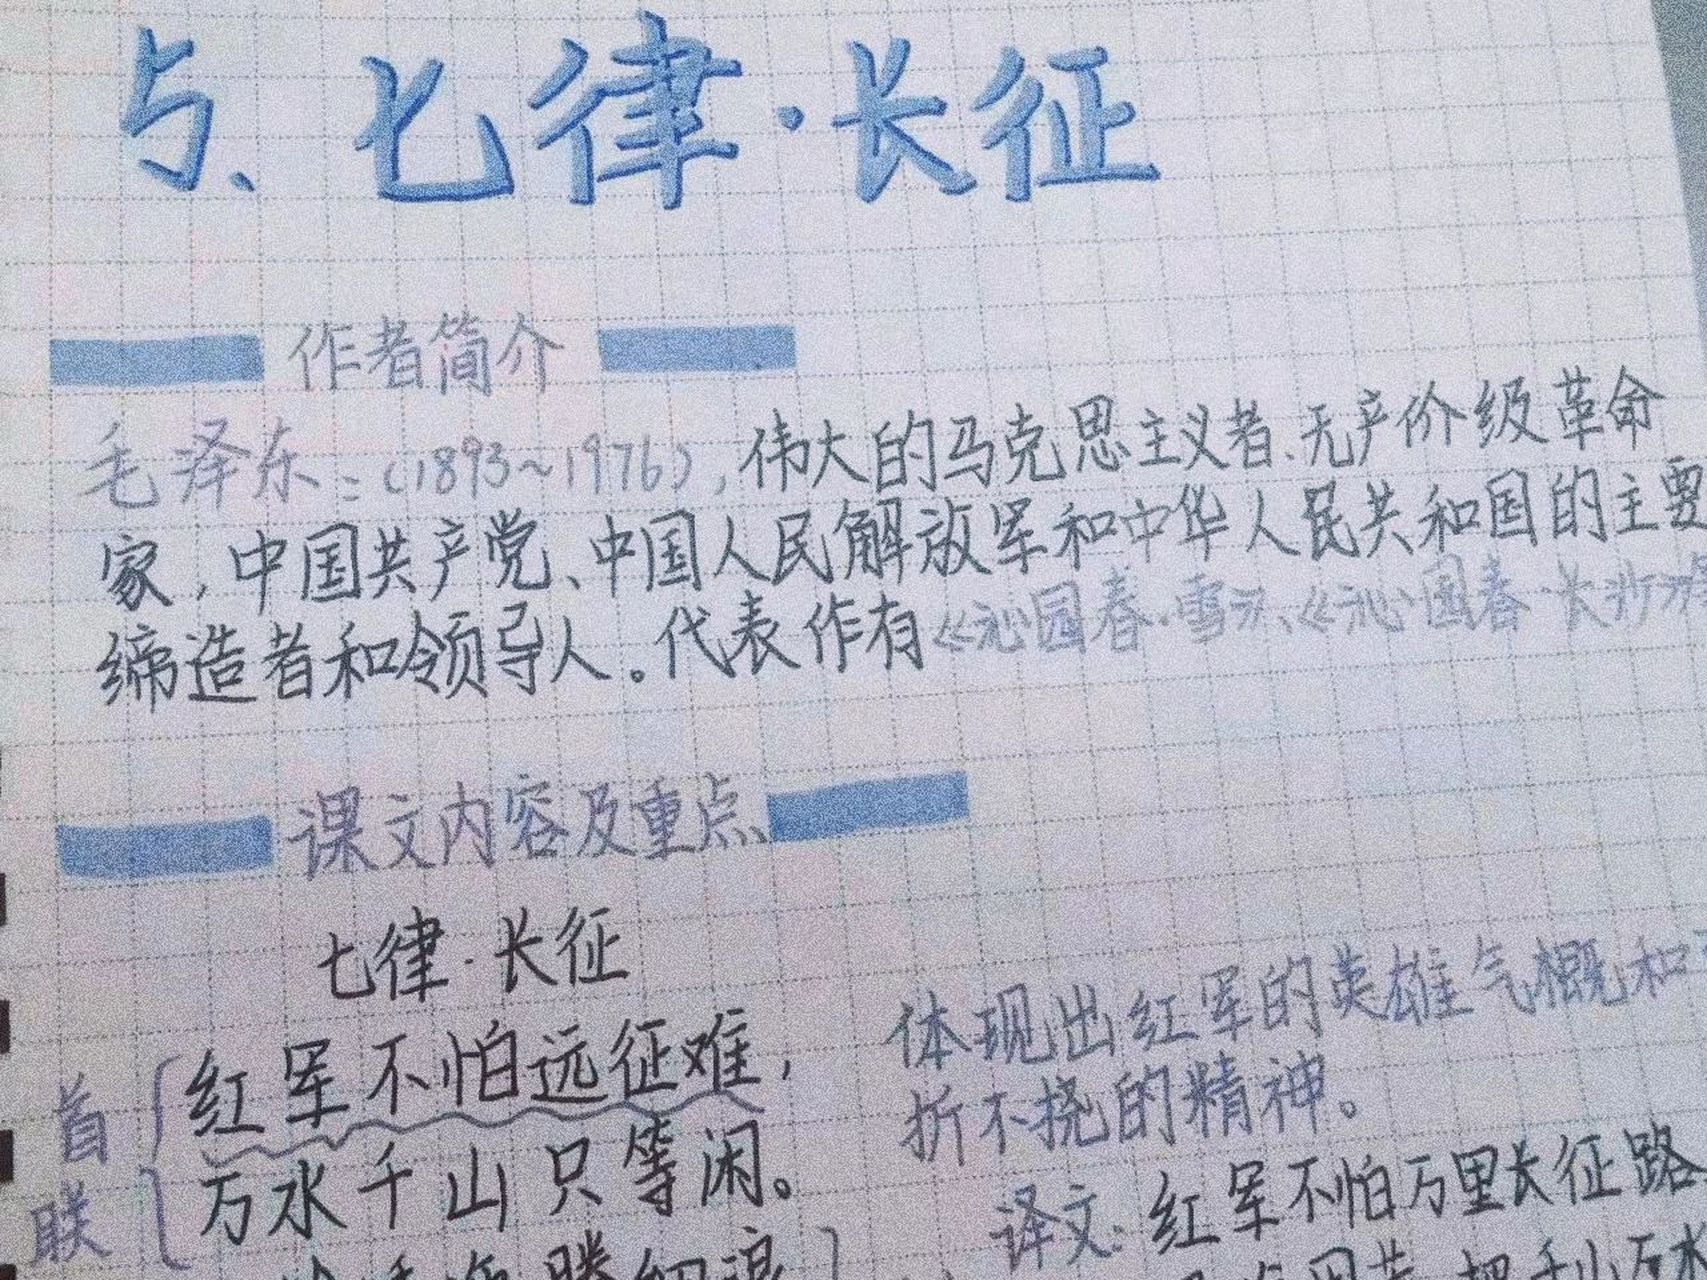 5、七律·长征
作者简介
毛泽东：(1893~1976)，伟大的马克思主义者、无产阶级革命
家，中国共产党、中国人民解放军和中华人民共和国的主要
缔造者和领导人。代表作有《沁园春·雪》、《沁园春·长沙》
课文内容及重点
七律·长征
首联
红军不怕远征难，
万水千山只等闲。
体现出红军的英雄气概和
折不挠的精神。
译文：红军不怕万里长征路
腾细浪